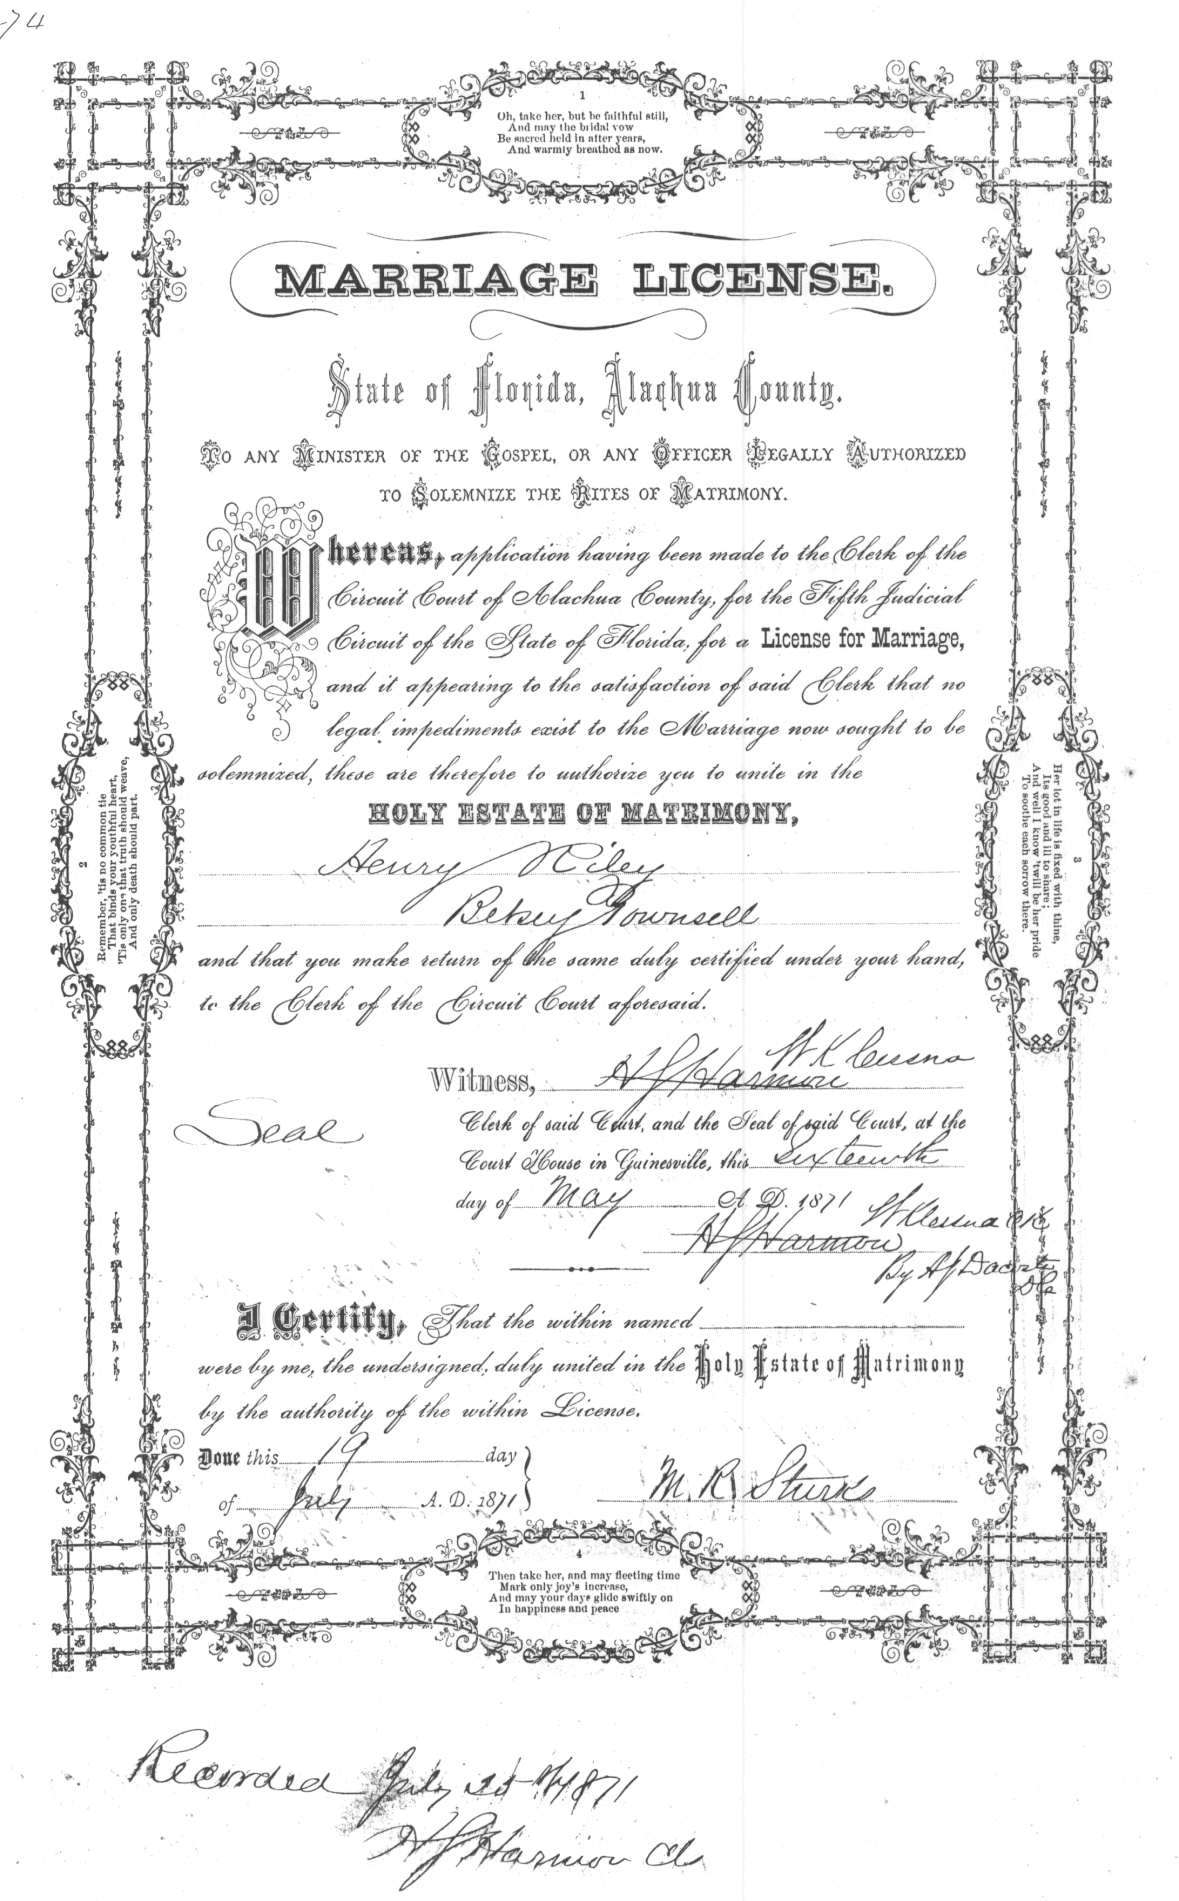 -74
1
Oh, take her, but be faithful still,
And may the bridal vow
Be sacred held in after years,
And warmly breathed as now.
MARRIAGE LICENSE.
State of Florida, Alachua County.
TO ANY MINISTER OF THE GOSPEL, OR ANY OFFICER LEGALLY AUTHORIZED
TO SOLEMNIZE THE RITES OF MATRIMONY.
Whereas, application having been made to the Clerk of the
Circuit Court of Alachua County, for the Fifth Judicial
Circuit of the State of Florida, for a License for Marriage,
and it appearing to the satisfaction of said Clerk that no
legal impediments exist to the Marriage now sought to be
solemnized, these are therefore to authorize you to unite in the
HOLY ESTATE OF MATRIMONY,
Henry Riley
Betsey Townsell
and that you make return of the same duly certified under your hand,
to the Clerk of the Circuit Court aforesaid.
W K Cessna
Witness, H J Harmon
Seal
Clerk of said Court, and the Seal of said Court, at the
Court House in Gainesville, this Sixteenth
day of May A. D. 1871
W K Cessna Clk
H J Harmon
By A J Dacosta
DC
I Certify, That the within named
were by me, the undersigned, duly united in the Holy Estate of Matrimony
by the authority of the within License.
Done this 19 day
of July A. D. 1871
M. R. Sturks
2
Remember, 'tis no common tie
That binds your youthful heart,
'Tis only one that truth should weave,
And only death should part.
3
Her lot in life is fixed with thine,
Its good and ill to share;
And well I know 'twill be her pride
To soothe each sorrow there.
4
Then take her, and may fleeting time
Mark only joy's increase,
And may your days glide swiftly on
In happiness and peace
Recorded July 1871
H J Harmon Clk